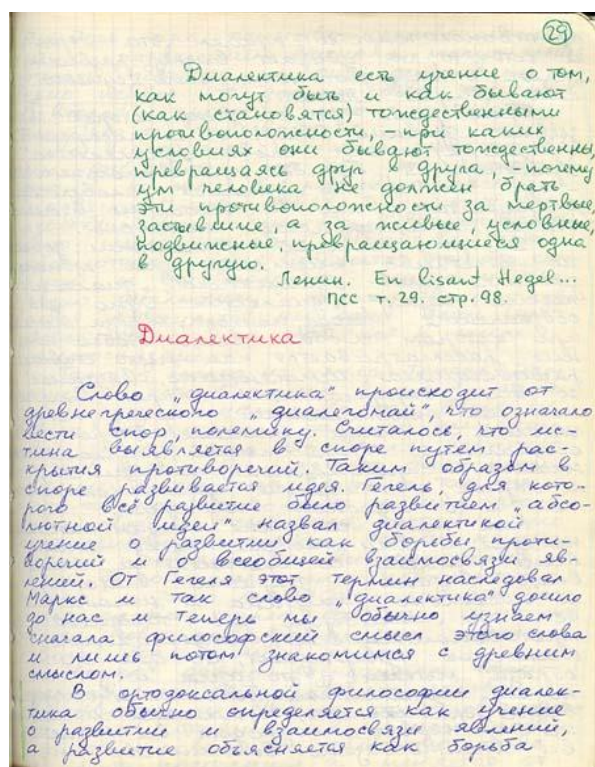 29
Диалектика есть учение о том,
как могут быть и как бывают
(как становятся) тождественными
противоположности, – при каких
условиях они бывают тождественны,
превращаясь друг в друга, – почему
ум человека не должен брать
эти противоположности за мертвые,
застывшие, а за живые, условные,
подвижные, превращающиеся одна
в другую.
Ленин. En lisant Hegel...
ПСС т. 29. стр. 98.
Диалектика
Слово „диалектика“ происходит от
древнегреческого „диалегомай“, что означало
вести спор, полемику. Считалось, что ис-
тина выявляется в споре путем рас-
крытия противоречий. Таким образом в
споре развивается идея. Гегель, для кото-
рого всё развитие было развитием „абсо-
лютной идеи“ назвал диалектикой
учение о развитии как борьбы проти-
воречий и о всеобщей взаимосвязи яв-
лений. От Гегеля этот термин наследовал
Маркс и так слово „диалектика“ дошло
до нас и теперь мы обычно узнаем
сначала философский смысл этого слова
и лишь потом знакомимся с древним
смыслом.
В ортодоксальной философии диалек-
тика обычно определяется как учение
о развитии и взаимосвязи явлений,
а развитие объясняется как борьба